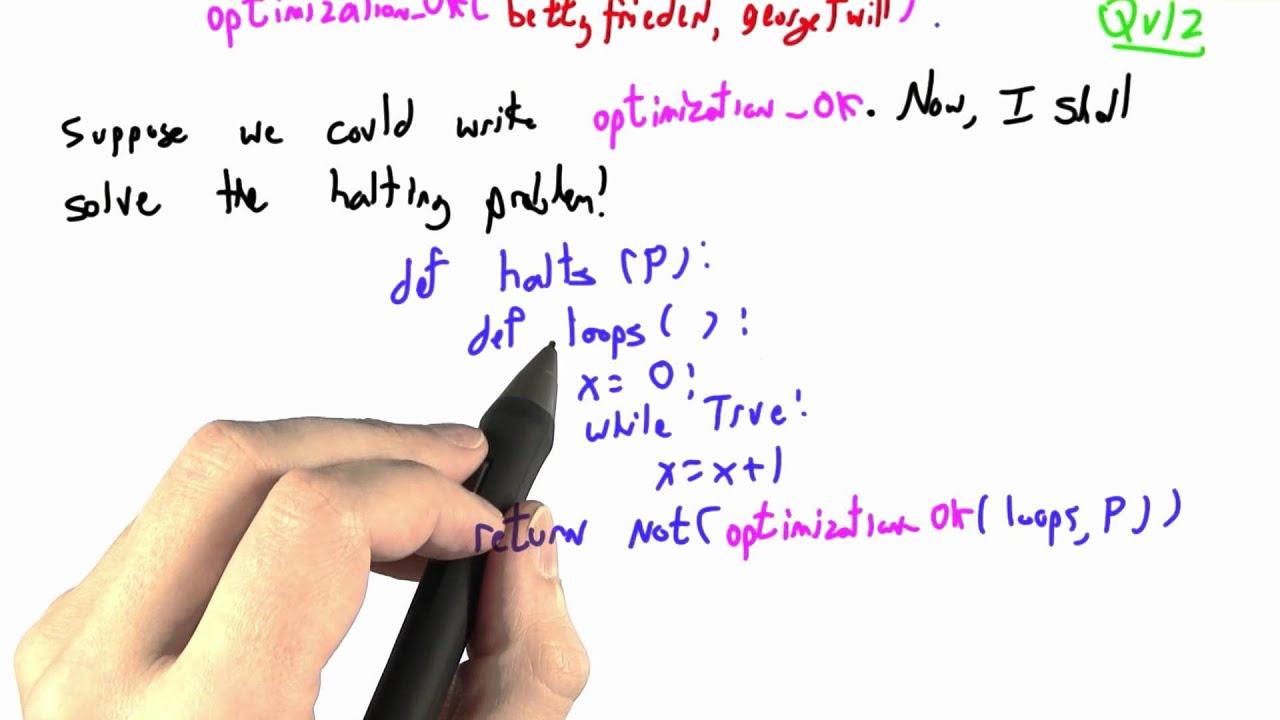 optimization_OK( betty frieden, george f will ) .
Quiz
Suppose we could write optimization_OK. Now, I shall
solve the halting problem!
def halts (P):
def loops ( ):
x = 0:
while True:
x = x + 1
return Not( optimization_OK( loops, P ) )